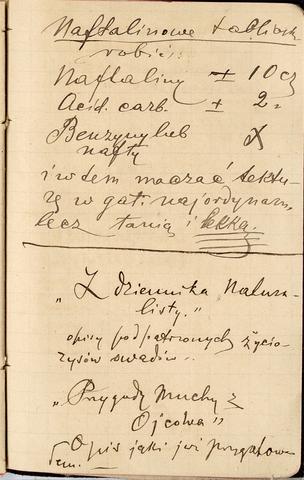 Naftalinowe tabliczk
robić:
Naftaliny ± 10 cz
Acid. carb. ± 2 "
Benzyny lub X
nafty
i w tem maczać tektu-
rę w gat. najordynarn.
lecz tanią i lekką.
"Z dziennika Natura-
listy."
opisy podpatrzonych życio-
rysów owadów..
"Przygody Muchy z
Ojcowa"
Opis jaki już przygotowa-
łem.